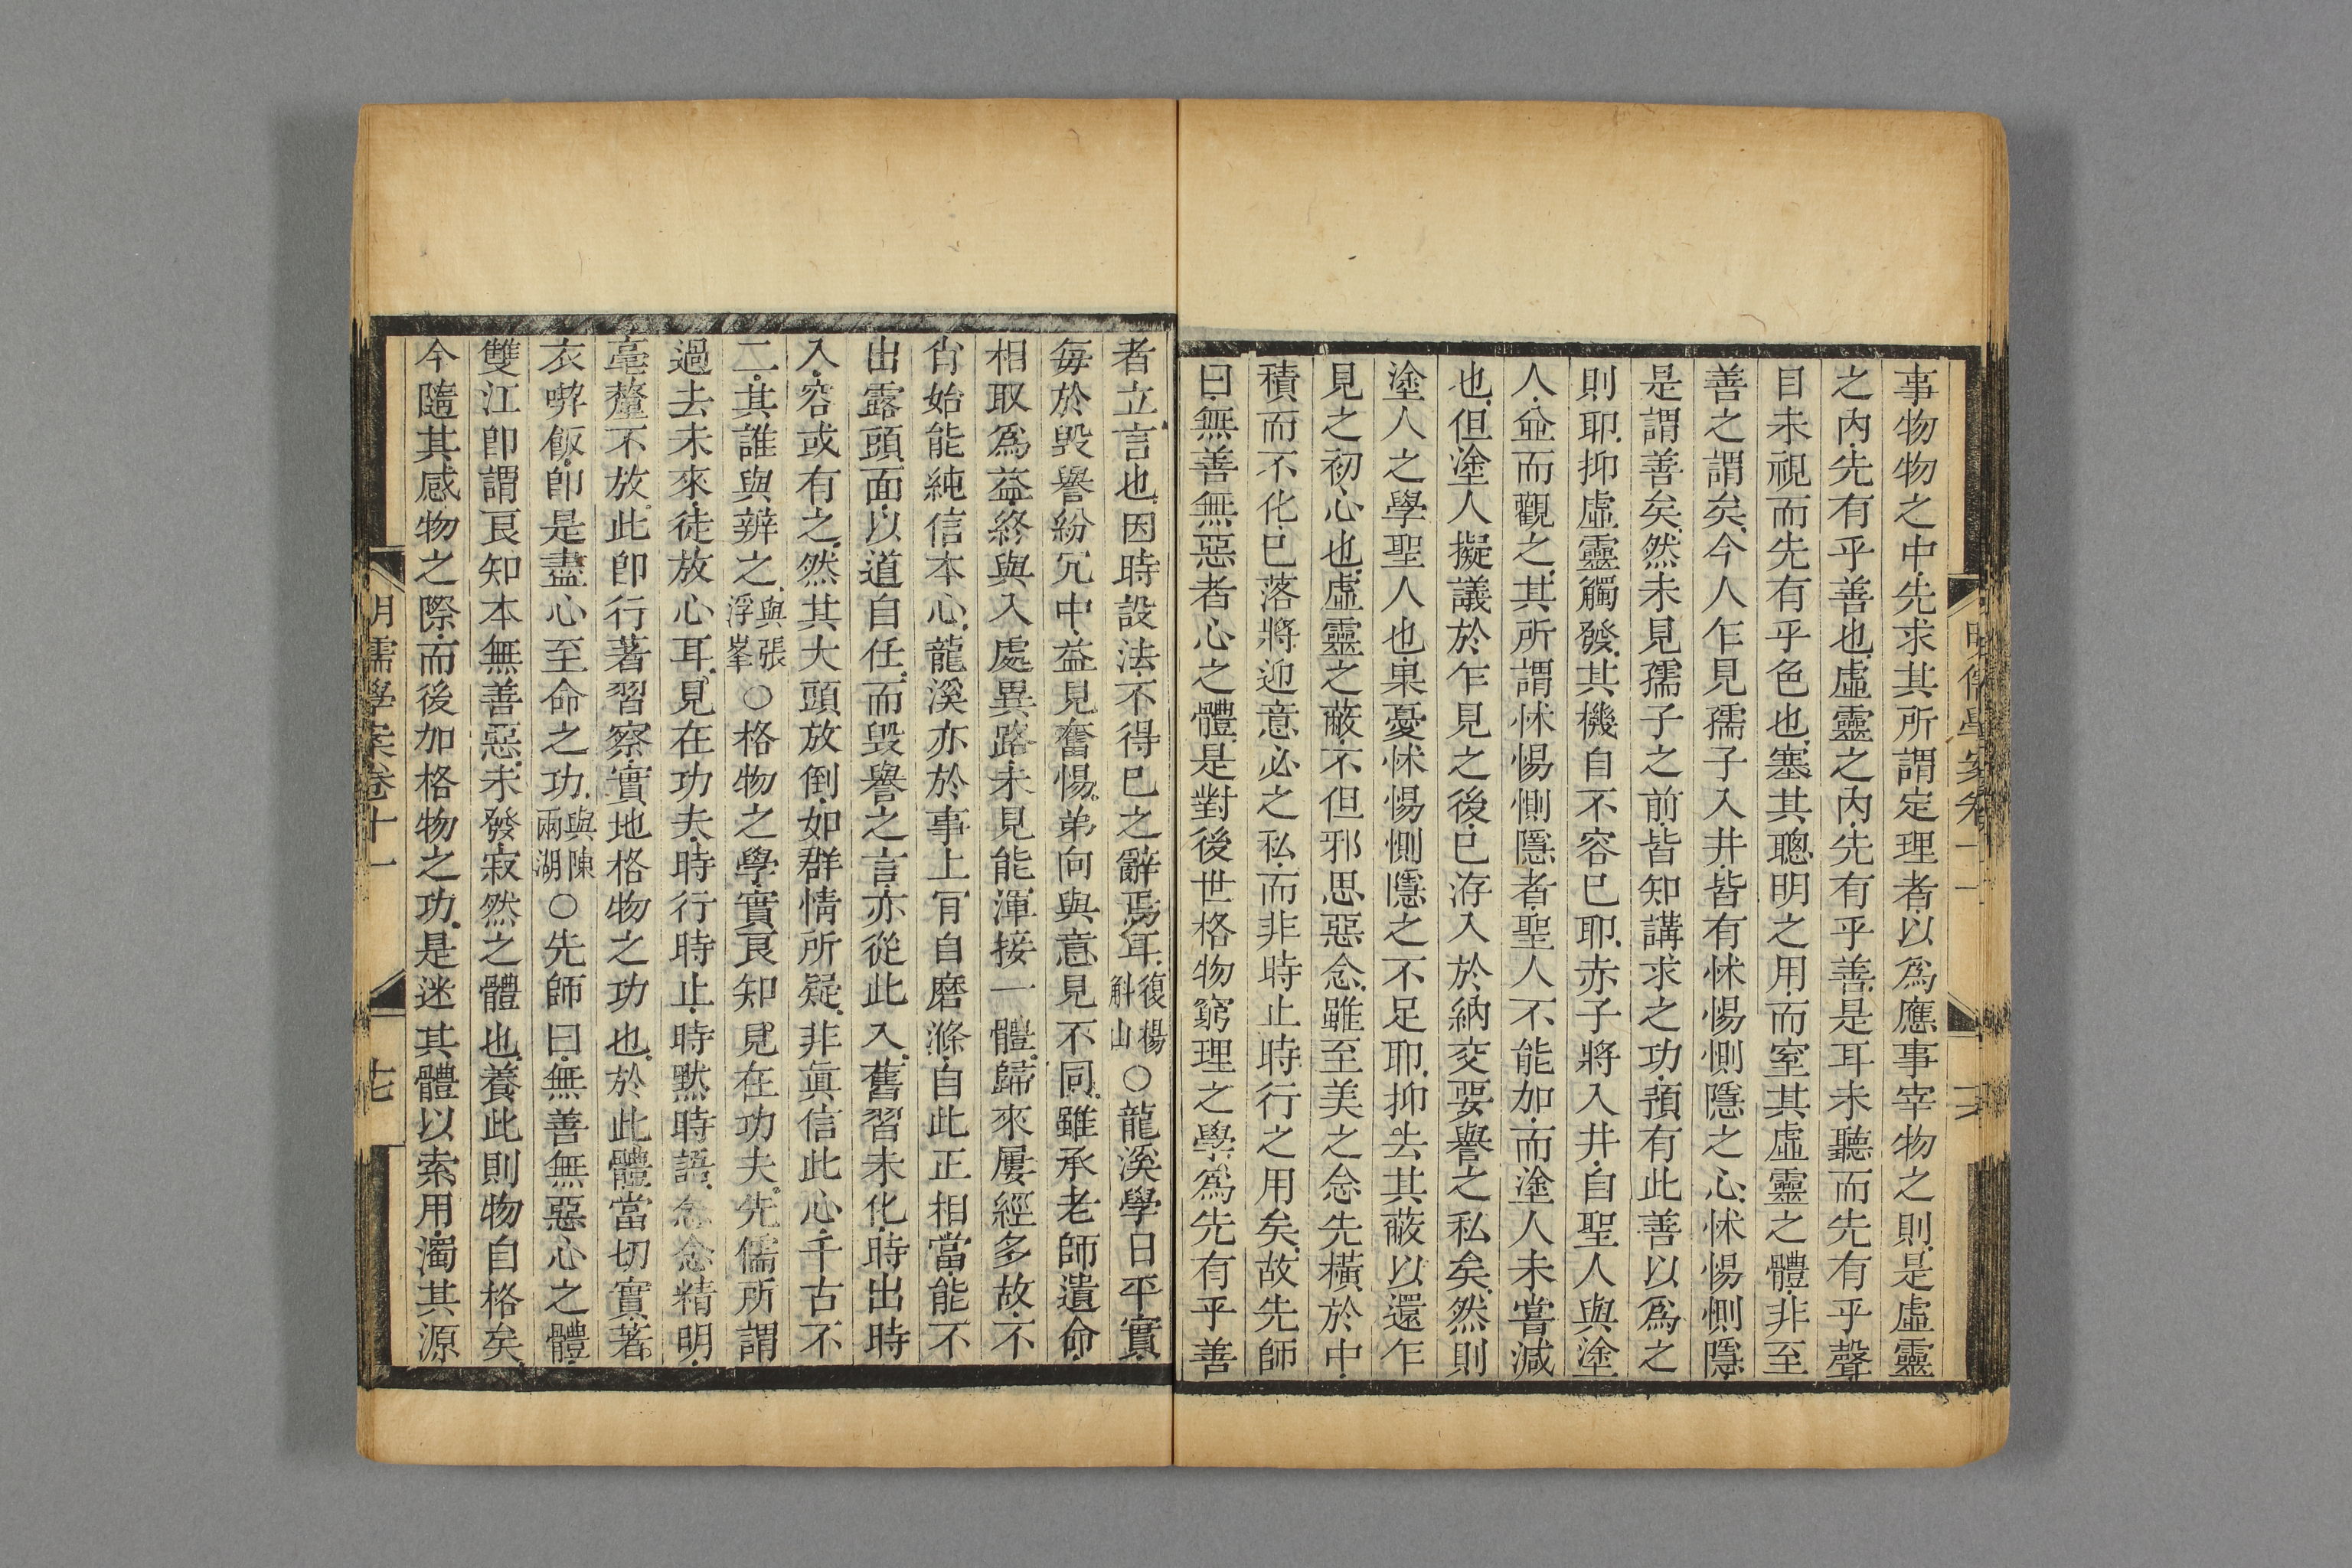 事物物之中先求其所謂定理者以爲應事宰物之則是虛靈
之內先有乎善也虛靈之內先有乎善是耳未聽而先有乎聲
目未視而先有乎色也塞其聰明之用而窒其虛靈之體非至
善之謂矣今人乍見孺子入井皆有怵惕惻隱之心怵惕惻隱
是謂善矣然未見孺子之前皆知講求之功預有此善以爲之
則耶抑虛靈觸發其機自不容已耶赤子將入井自聖人與塗
人並而觀之其所謂怵惕惻隱者聖人不能加而塗人未嘗減
也但塗人擬議於乍見之後已洊入於納交要譽之私矣然則
塗人之學聖人也果憂怵惕惻隱之不足耶抑去其蔽以還乍
見之初心也虛靈之蔽不但邪思惡念雖至美之念先橫於中
積而不化已落將迎意必之私而非時止時行之用矣故先師
曰無善無惡者心之體是對後世格物窮理之學爲先有乎善
明儒學案卷十一 十六
者立言也因時設法不得已之辭焉耳復楊斛山○龍溪學日平實
每於毀譽紛冗中益見奮惕弟向與意見不同雖承老師遺命
相取爲益終與入處異路未見能渾接一體歸來屢經多故不
肯始能純信本心龍溪亦於事上肎自磨滌自此正相當能不
出露頭面以道自任而毀譽之言亦從此入舊習未化時出時
入容或有之然其大頭放倒如群情所疑非眞信此心千古不
二其誰與辨之與張浮峯○格物之學實良知見在功夫先儒所謂
過去未來徒放心耳見在功夫時行時止時默時語念念精明
毫釐不放此卽行著習察實地格物之功也於此體當切實著
衣喫飯卽是盡心至命之功與陳兩湖○先師曰無善無惡心之體
雙江卽謂良知本無善惡未發寂然之體也養此則物自格矣
今隨其感物之際而後加格物之功是迷其體以索用濁其源
明儒學案卷十一 十七